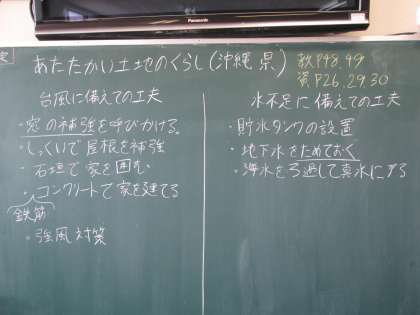 Panasonic
あたたかい土地のくらし(沖縄県)
教P48.49
資P26.29.30
台風に備えての工夫
・窓の補強を呼びかける。
・しっくいで屋根を補強
・石垣で家を囲む
・コンクリートで家を建てる
鉄筋
・強風対策
水不足に備えての工夫
・貯水タンクの設置
・地下水をためておく
・海水をろ過して真水にする